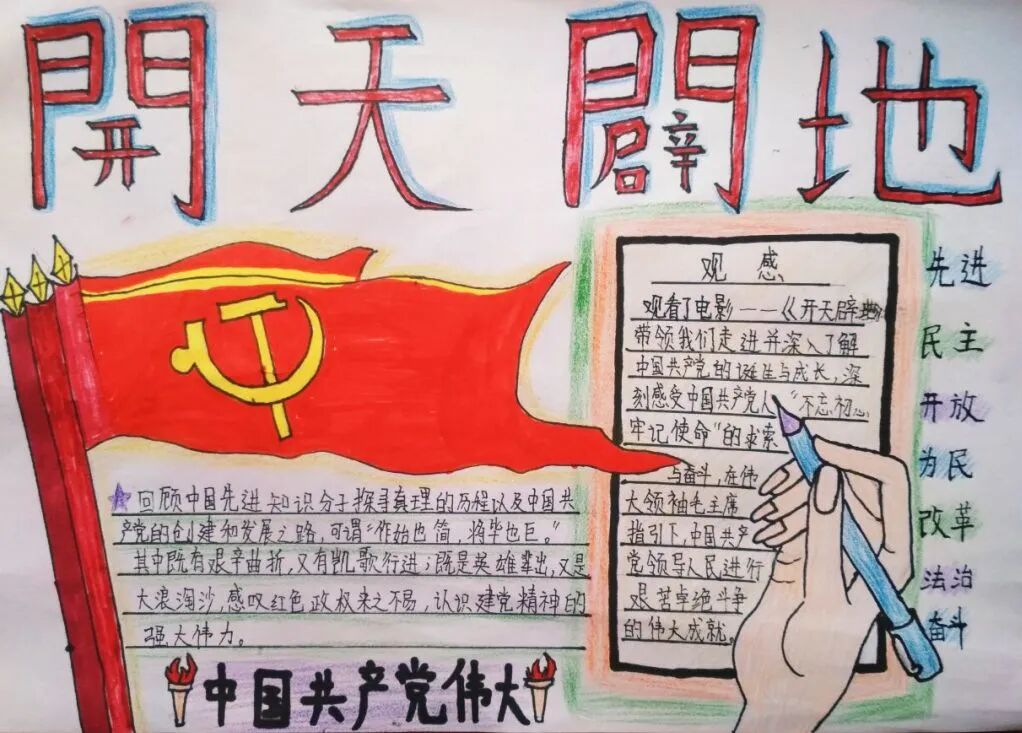 開天闢地
观感
观看了电影——《开天辟地》
带领我们走进并深入了解
中国共产党的诞生与成长,深
刻感受中国共产党人"不忘初心
牢记使命"的求索
与奋斗,在伟
大领袖毛主席
指引下,中国共产
党领导人民进行
艰苦卓绝斗争
的伟大成就。
先进
民主
开放
为民
改革
法治
奋斗
回顾中国先进知识分子探寻真理的历程以及中国共
产党的创建和发展之路,可谓"作始也简,将毕也巨。"
其中既有艰辛曲折,又有凯歌行进;既是英雄辈出,又是
大浪淘沙,感叹红色政权来之不易,认识建党精神的
强大伟力。
中国共产党伟大